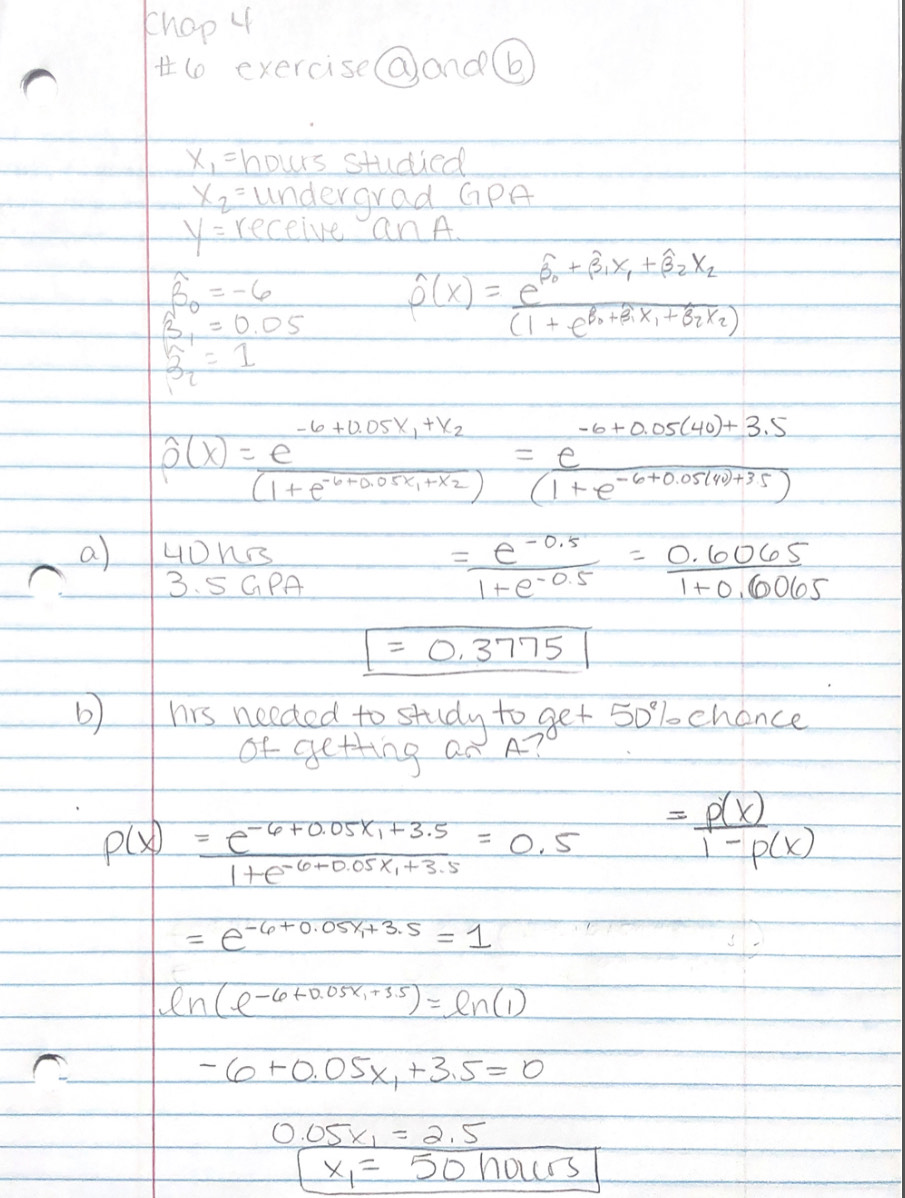 Chap 4
#6 exercise ⓐ and ⓑ
x₁ = hours studied
x₂ = undergrad GPA
y = receive an A.
β̂₀ = -6
β̂₁ = 0.05
β̂₂ = 1
p̂(x) = e^(β̂₀ + β̂₁x₁ + β̂₂x₂) / (1 + e^(β̂₀ + β̂₁x₁ + β̂₂x₂))
p̂(x) = e^(-6 + 0.05x₁ + x₂) / (1 + e^(-6 + 0.05x₁ + x₂)) = e^(-6 + 0.05(40) + 3.5) / (1 + e^(-6 + 0.05(40) + 3.5))
a) 40 hrs
3.5 GPA
= e^(-0.5) / 1 + e^(-0.5) = 0.6065 / 1 + 0.6065
= 0.3775
b) hrs needed to study to get 50% chance
of getting an A?
p(x) = e^(-6 + 0.05x₁ + 3.5) / 1 + e^(-6 + 0.05x₁ + 3.5) = 0.5
= p(x) / 1 - p(x)
= e^(-6 + 0.05x₁ + 3.5) = 1
ln(e^(-6 + 0.05x₁ + 3.5)) = ln(1)
-6 + 0.05x₁ + 3.5 = 0
0.05x₁ = 2.5
x₁ = 50 hours